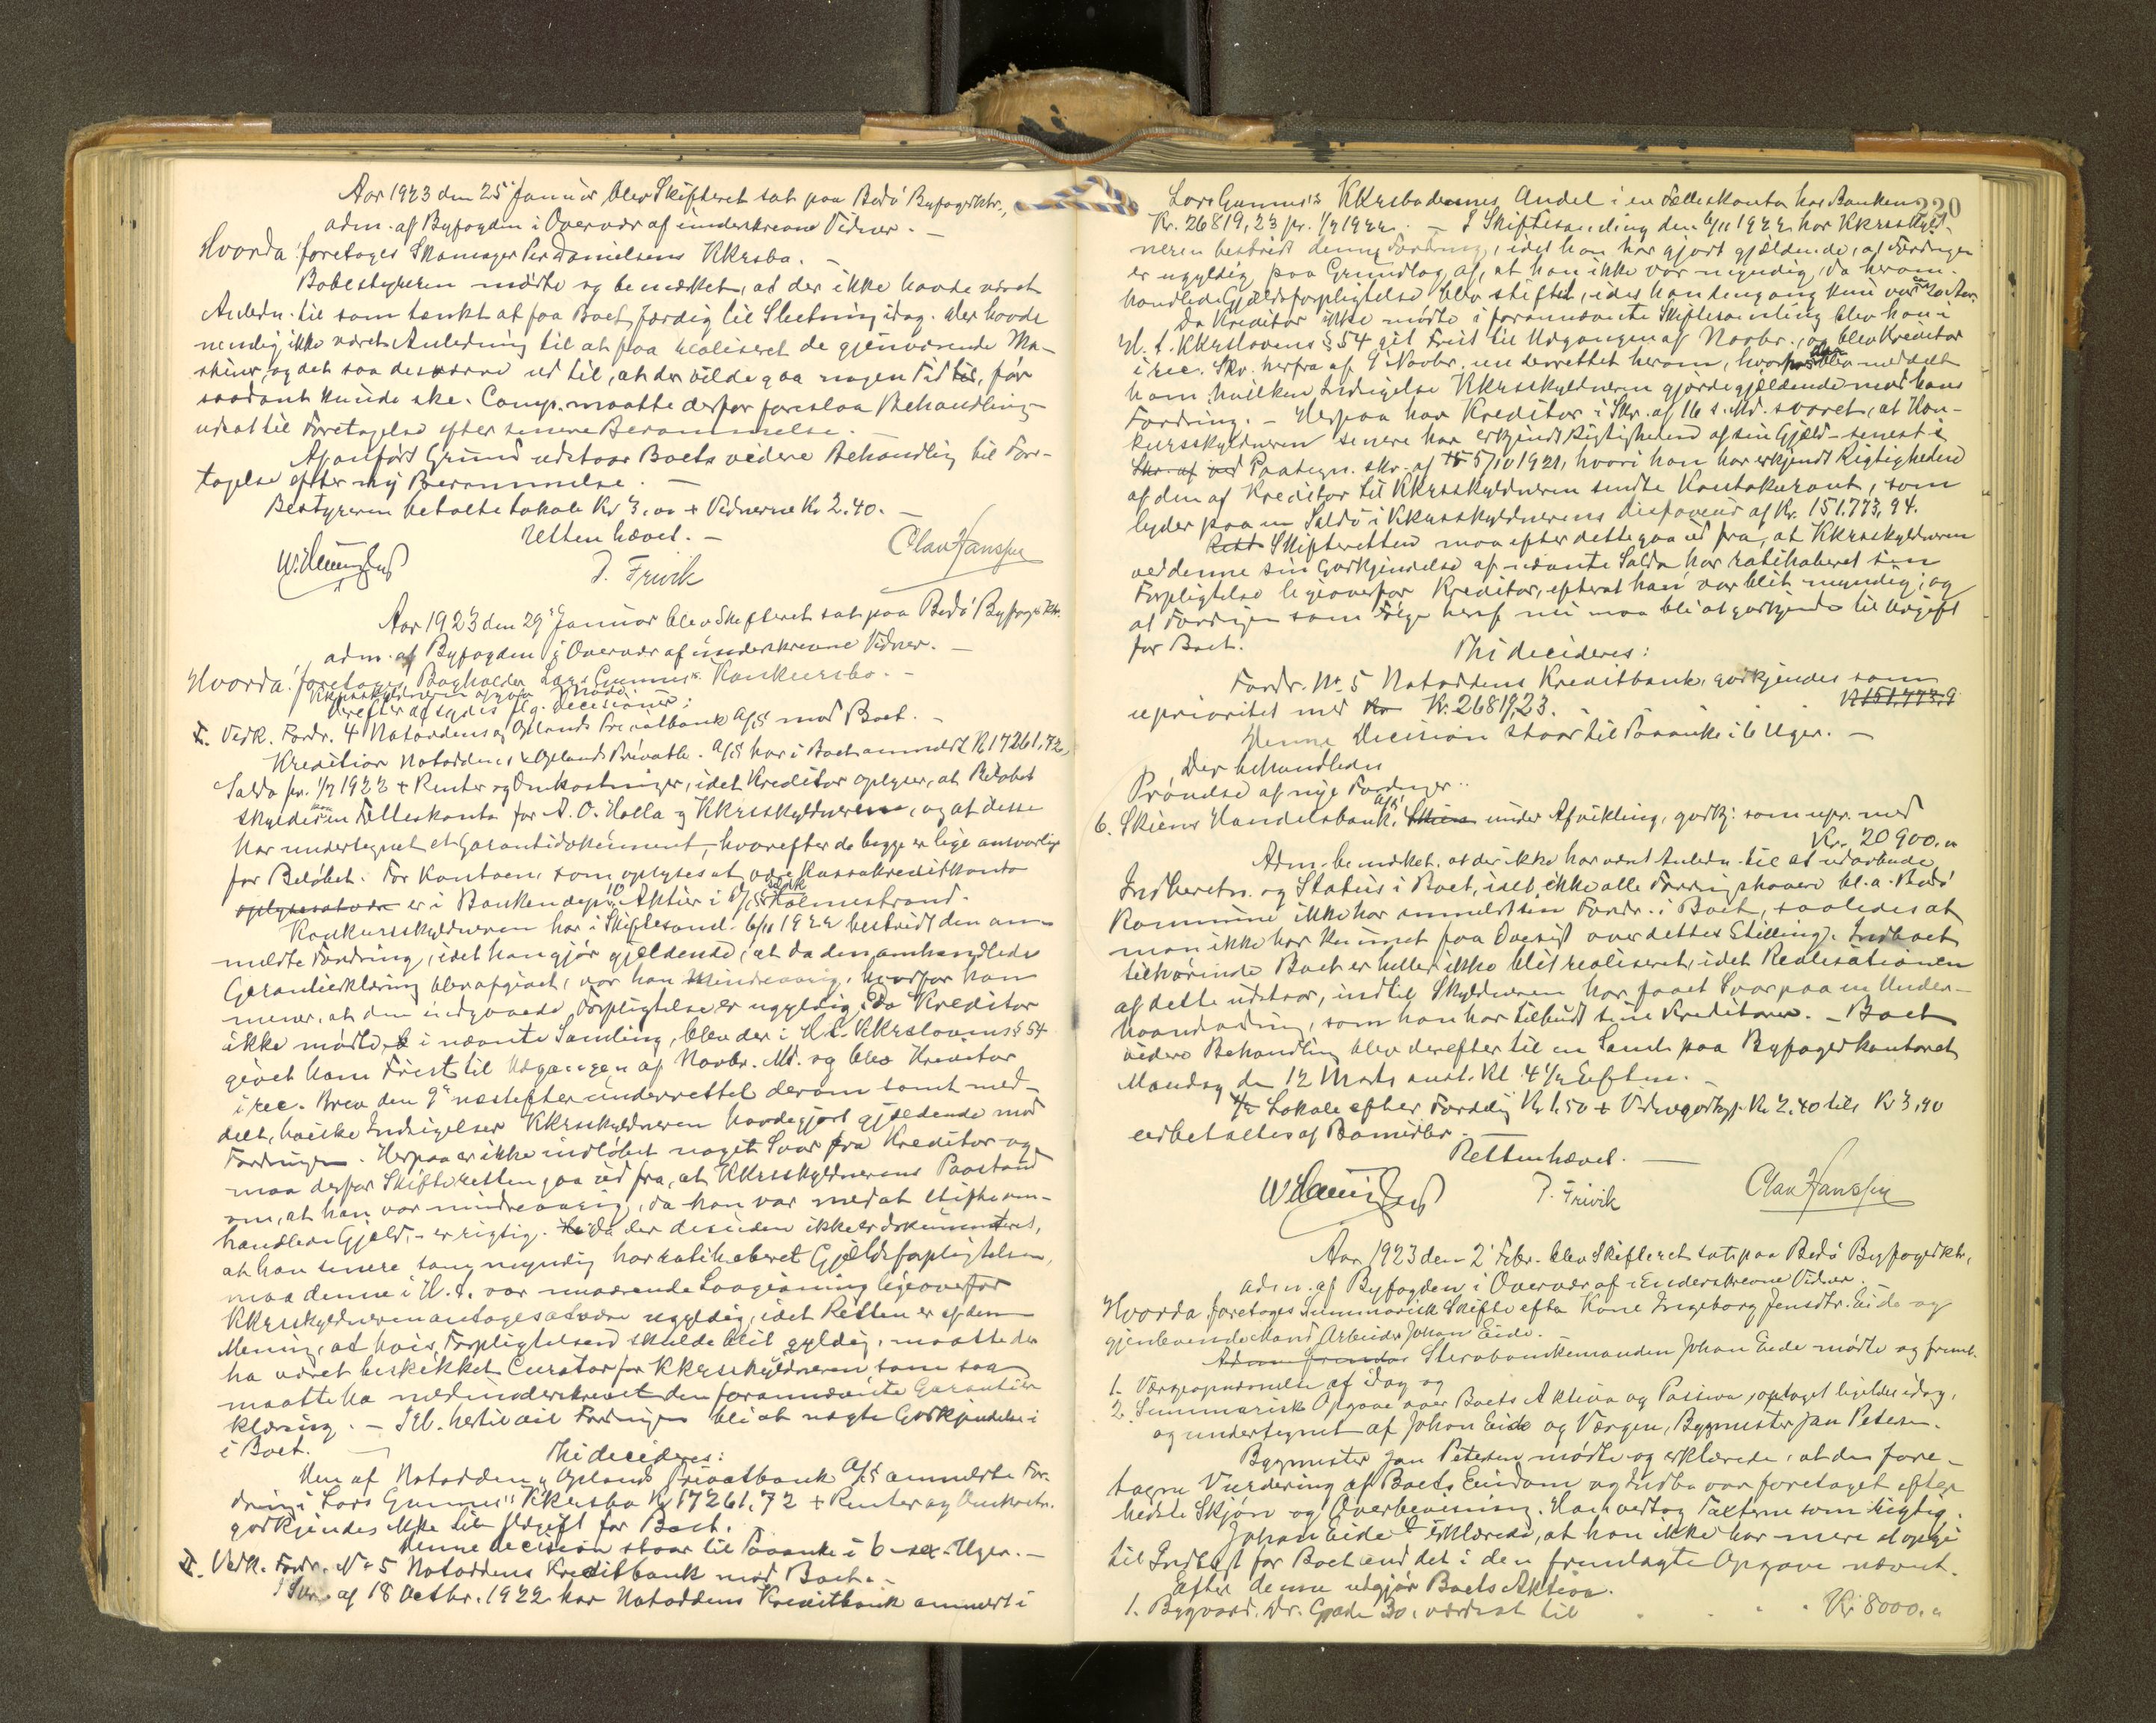 Aar 1923 den 25 Januar blev Skifteret sat paa Bodö Byfogdktr.,
adm. af Byfogden i Overvær af underskrevne Vidner. –
Hvorda: foretoges Skomager Per Danielsens Kkrsbo. –
Bobestyreren mødte og bemærket, at der ikke havde været
Anledn. til som tænkt at faa Boet færdig til Slutning idag. Der havde
nemlig ikke været Anledning til at faa realiseret de gjenværende Ma-
skiner, og det saa desværre ud til, at der vilde gaa nogen Tid til, før
saadant kunde ske. Comp. maatte derfor foreslaa Behandling
udsat til Foretagelse efter senere Berammelse. –
Af anført Grund udstaar Boets videre Behandling til Fore-
tagelse efter ny Berammelse. –
Bestyreren betalte Lokale Kr 3,00 + Vidnerne Kr 2.40. –
Retten hævet. –
P. Frivik
Olav Hanssen
Aar 1923 den 29 Januar blev Skifteret sat paa Bodö Byfogdktr.
adm. af Byfogden i Overvær af underskrevne Vidner. –
Hvorda: foretoges Bogholder Lars Gunnus's Konkursbo. –
Kkrsskyldneren afgav Møde.
Derefter afsagdes flg. Decisioner:
I. Vedk. Fordr. 4 Notodden og Oplands Privatbank A/S mod Boet. –
Kreditor Notodden & Oplands Privatb. A/S har i Boet anmeldt Kr 17261,72,
Saldo pr. 1/7 1922 + Renter og Omkostninger, idet Kreditor oplyser, at Beløbet
skyldes en Felleskonto for A. O. Holla og Kkrsskyldneren, og at disse
har undertegnet et Garantidokument, hvorefter de begge er lige ansvarlige
for Beløbet. For Kontoen, som oplyses at være Kassakreditkonto
oplyses at være er i Banken dep. 10 Aktier i A/S Holmestrand.
Konkursskyldneren har i Skiftesaml. 6/11 1922 bestridt den an-
meldte Fordring, idet han gjør gjældende, at da den omhandlede
Garantierklæring blev afgivet, var han Mindreaarig, hvorfor han
mener, at den indgaaede Forpligtelse er ugyldig. Da Kreditor
ikke mødte i nævnte Samling, blev der i H.t. Kkrslovens § 54
givet ham Frist til Udgangen af Novbr. Md. og blev Kreditor
i rec. Brev den 9' næstefter underrettet derom samt med-
delt, hvilke Indsigelser Kkrsskyldneren havde gjort gjældende mod
Fordringen. Herpaa er ikke indløbet noget Svar fra Kreditor og
maa derfor Skifteretten gaa ud fra, at Kkrsskyldnerens Paastand
om, at han var mindreaarig, da han var med at stifte om-
handlede Gjæld, – er rigtig. Da der desuden ikke er dokumenteret,
at han senere som myndig har ratihaberet Gjældsforpligtelsen,
maa denne i H.t. vor nuværende Lovgivning ligeoverfor
Kkrsskyldneren antages at være ugyldig, idet Retten er af den
Mening, at hvis Forpligtelsen skulde blit gyldig, maatte der
ha været beskikket Curator for Kkrsskyldneren som saa
maatte ha medunderskrevet den forannævnte Garantier-
klæring. – Iflb. hertil vil Fordringen bli at negte Godkjendelse i
i Boet.
Thi decideres:
Den af Notodden & Oplands Privatbank A/S anmeldte For-
dring i Lars Gunnus's Kkrsbo Kr 17261,72 + Renter og Omkostn.
godkjendes ikke til Udgift for Boet.
Denne Decision staar til Paaanke i 6 – sex – Uger. –
II. Vedk. Fordr. No 5 Notoddens Kreditbank mod Boet. –
I Skr. af 18 Octbr. 1922 har Notoddens Kreditbank anmeldt i
220
Lars Gunnus's Kkrsbo dennes Andel i en Felleskonto hos Banken
Kr. 26819,23 pr. 1/7 1922. – I Skiftesamling den 6/11 1922 har Kkrsskyld-
neren bestridt denne Fordring, idet han har gjort gjældende, at Fordringen
er ugyldig paa Grundlag af, at han ikke var myndig, da hvorom-
handlede Gjældsforpligtelse blev stiftet, idet han dengang kun var
Da Kreditor ikke mødte i forannævnte Skiftesamling blev han i
H.t. Kkrslovens § 54 git Frist til Udgangen af Novbr., og blev Kreditor
i rec. Skr. herfra af 9' Novbr. underrettet herom, hvorhos der blev meddelt
ham hvilken Indsigelse Kkrsskyldneren gjorde gjældende mod hans
Fordring. – Herpaa har Kreditor i Skr. af 16 s. Md. svaret, at Kon-
kursskyldneren senere har erkjendt Rigtigheden af sin Gjæld – senest i
Skr. af ved Paategn. skr. af 5/10 1921, hvori han har erkjendt Rigtigheden
af den af Kreditor til Kkrsskyldneren sendte Kontokurant, som
lyder paa en Saldo i Kkrsskyldnerens Disfaveur af Kr. 151.773,94.
Rett Skifteretten maa efter dette gaa ud fra, at Kkrsskyldneren
ved denne sin Godkjendelse af nævnte Saldo har ratihaberet sin
Forpligtelse ligeoverfor Kreditor, efterat han var blit myndig, og
at Fordringen som Følge heraf nu maa bli at godkjende til Udgift
for Boet.
Thi decideres:
Fordr. No 5 Notoddens Kreditbank, godkjendes som
uprioritet med Kr. 26819,23. Kr 151.773.9
Denne Decision staar til Paaanke i 6 Uger. –
Der behandledes
Prøvelse af nye Fordringer..
6. Skiens Handelsbank A/S, Skien under Afvikling, godkj. som upr. med
Kr. 20900,"
Adm. bemærket, at der ikke har været Anledn. til at udarbeide
Indberetn. og Status i Boet, idet ikke alle Fordringshavere bl.a. Bodö
Kommune ikke har anmeldt sin Fordr. i Boet, saaledes at
man ikke har kunnet faa Oversigt over dettes Stilling. Indboet
tilhørende Boet er heller ikke blit realiseret, idet Realisationen
af dette udstaar, indtil Skyldneren har faaet Svar paa en Under-
haandsordning, som han har tilbudt sine Kreditorer. – Boets
videre Behandling blev derefter til en Saml. paa Byfogedkontoret
Mandag den 12 Marts anst. Kl 4 1/2 Eftm. –
1/2 Lokale efter Fordelig Kr 1.50 + Vidnegodtgj. Kr 2.40 tils Kr 3,90
udbetaltes af Bomidler. –
Retten hævet. –
P. Frivik
Olav Hanssen
Aar 1923 den 2' Febr. blev Skifteret sat paa Bodö Byfogedktr.,
adm. af Byfogden i Overvær af Underskrevne Vidner. –
Hvorda foretoges Summarisk Skifte efter Kone Ingeborg Jensdtr. Eide og
gjenlevende Mand Arbeider Johan Eide.
Sterbo Enkemanden Johan Eide mødte og freml.
1. Værgeopnævnelse af idag og
2. Summarisk Opgave over Boets Aktiva og Passiva, optaget ligeledes idag,
og undertegnet af Johan Eide og Værgen, Bygmester Jan Petersen.
Bygmester Jan Petersen mødte og erklærede, at den fore-
tagne Vurdering af Boets Eiendom og Indbo var foretaget efter
bedste Skjøn og Overbevisning. Han vedtog Taxterne som rigtig.
Johan Eide Erklærede, at han ikke har mere at opgi
til Indtægt for Boet end det i den fremlagte Opgave nævnt.
Efter denne utgjør Boets Aktiva.
1. Bygaard Dr. Gade 30, værdsat til . . . . Kr 8000,"